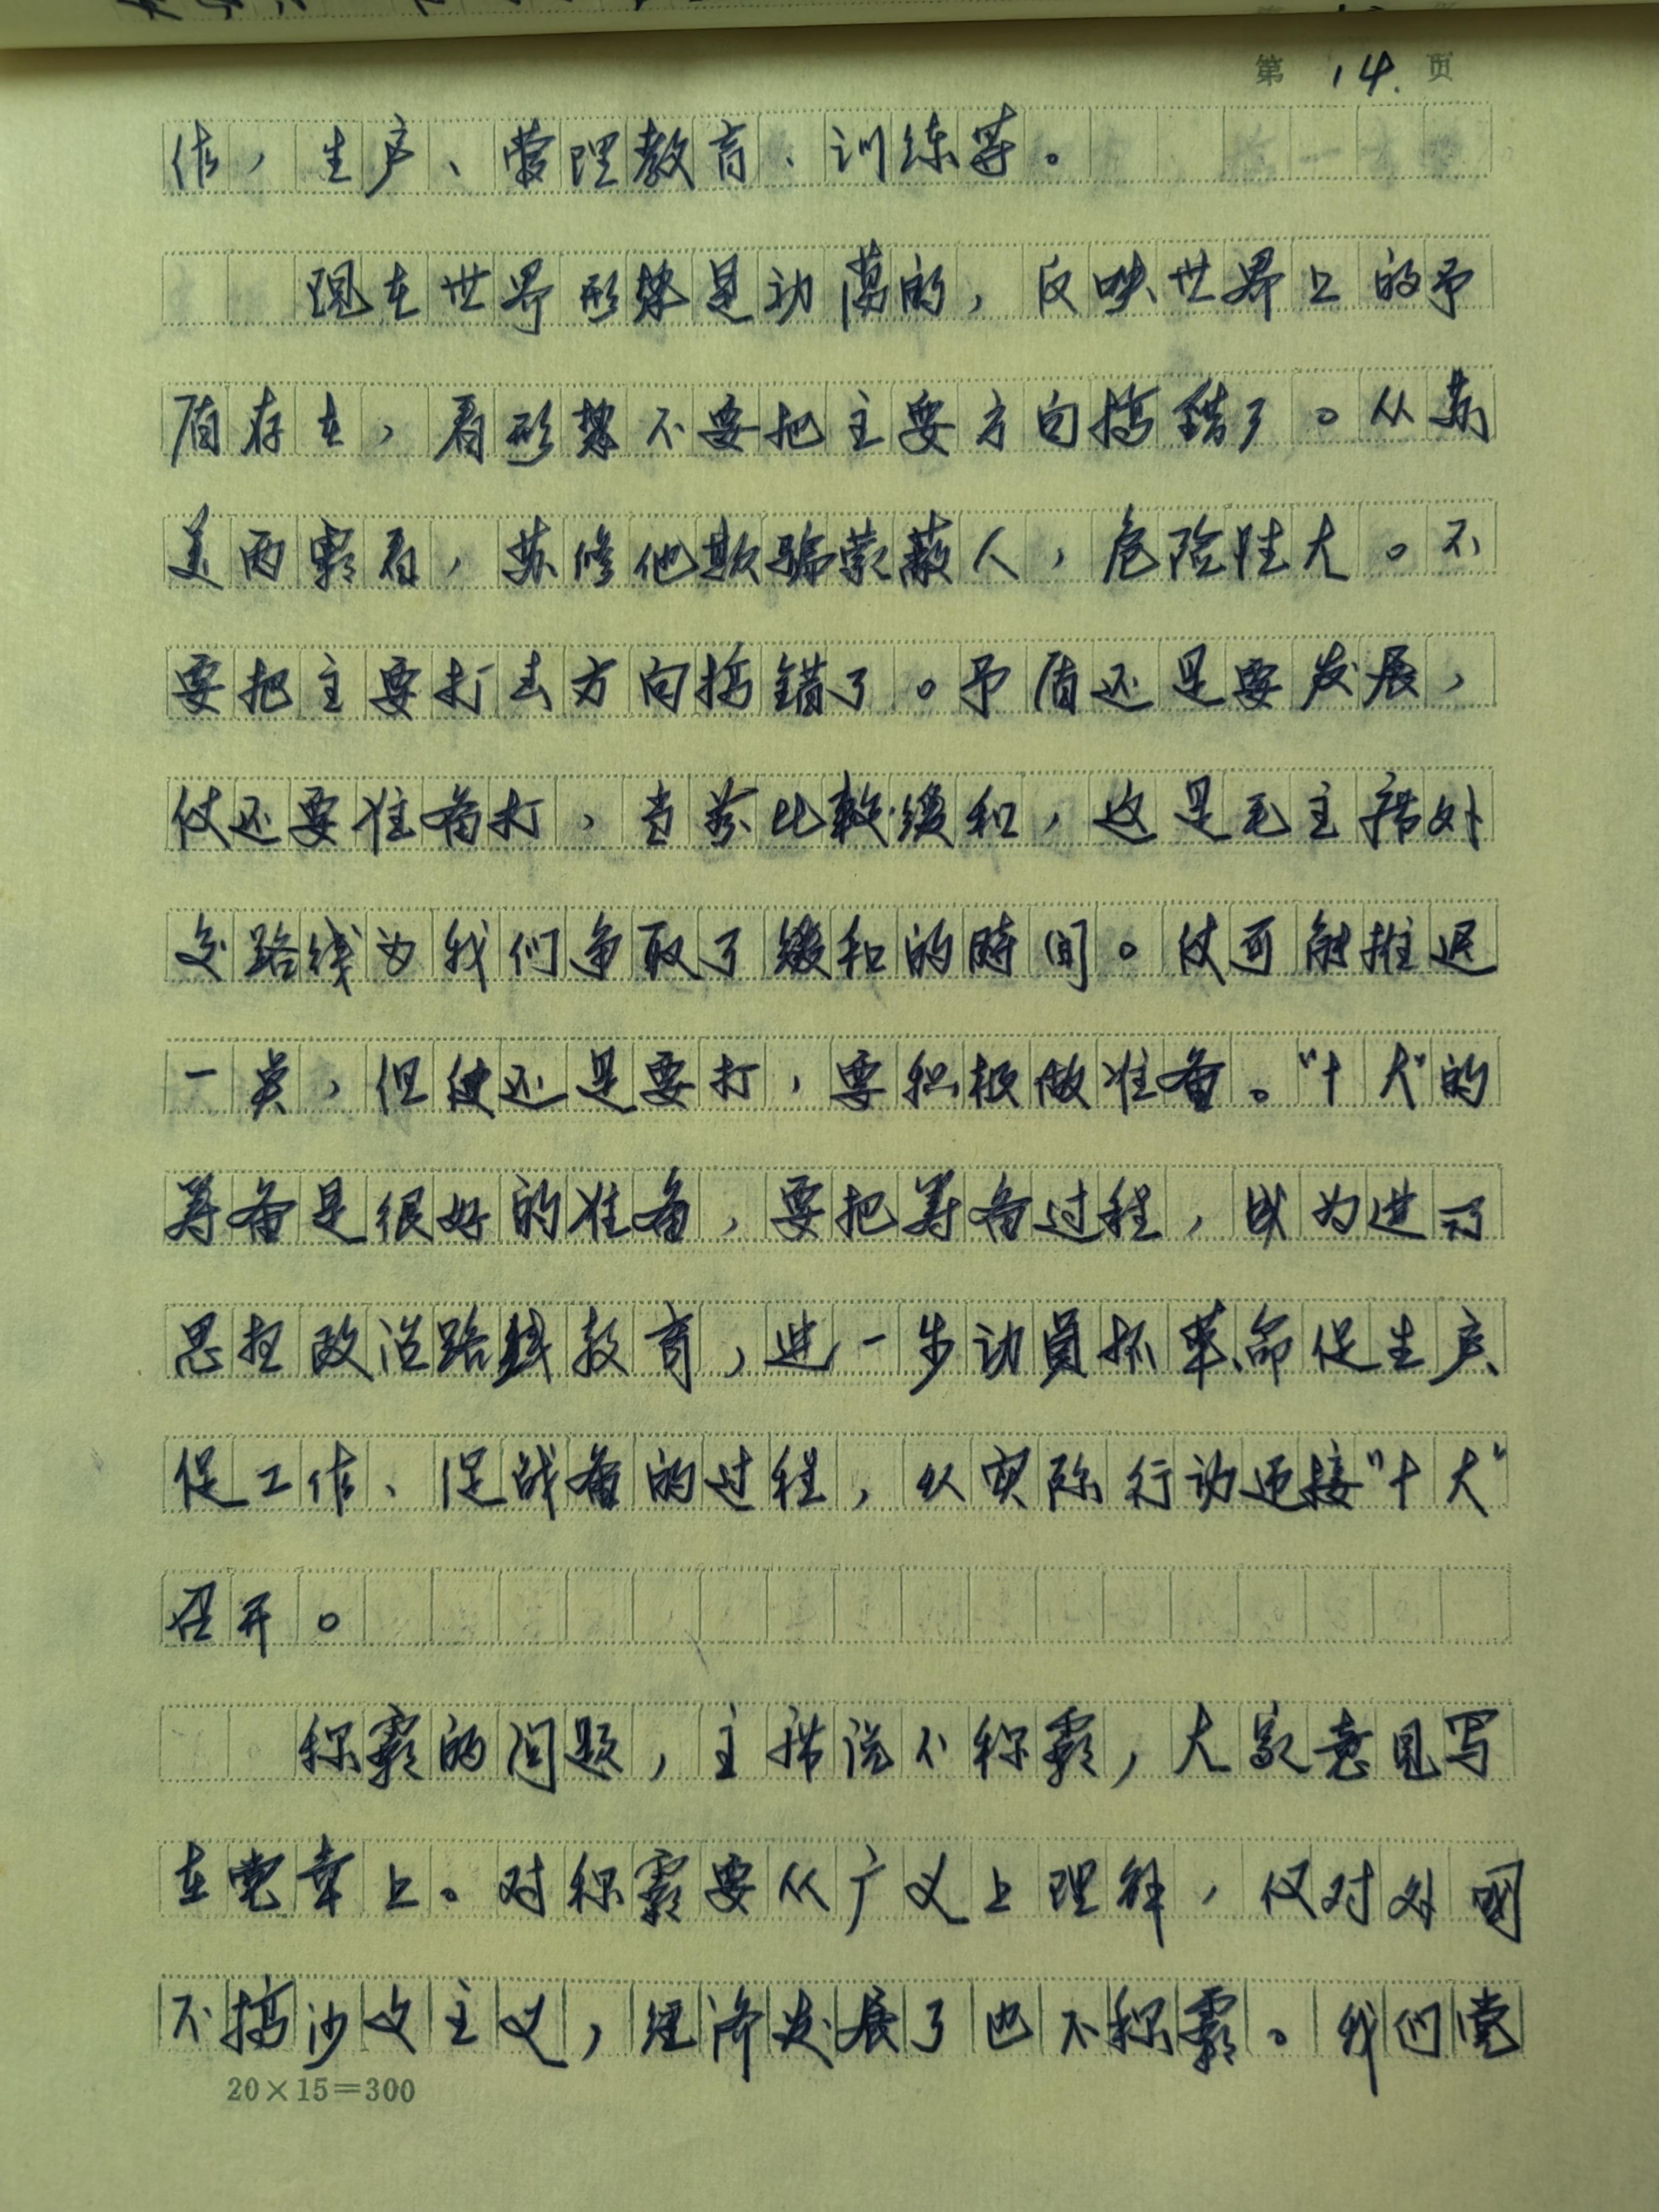 第 14. 页
作，生产、营理教育、训练等。
现在世界形势是动荡的，反映世界上的矛
盾存在，看形势不要把主要方向搞错了。从苏
美两霸看，苏修他欺骗蒙蔽人，危险性大。不
要把主要打击方向搞错了。矛盾还是要发展，
仗还要准备打，当前比较缓和，这是毛主席外
交路线为我们争取了缓和的時间。仗可能推迟
一点，但使还是要打，要积极做准备。“十大”的
筹备是很好的准备，要把筹备过程，成为进行
思想政治路线教育，进一步动員抓革命促生产、
促工作、促战备的过程，以实际行动迎接“十大”
召开。
称霸的问题，主席说不称霸，大家意见写
在党章上。对称霸要从广义上理解，仅对外国
不搞沙文主义，经济发展了也不称霸。我们党
20×15=300